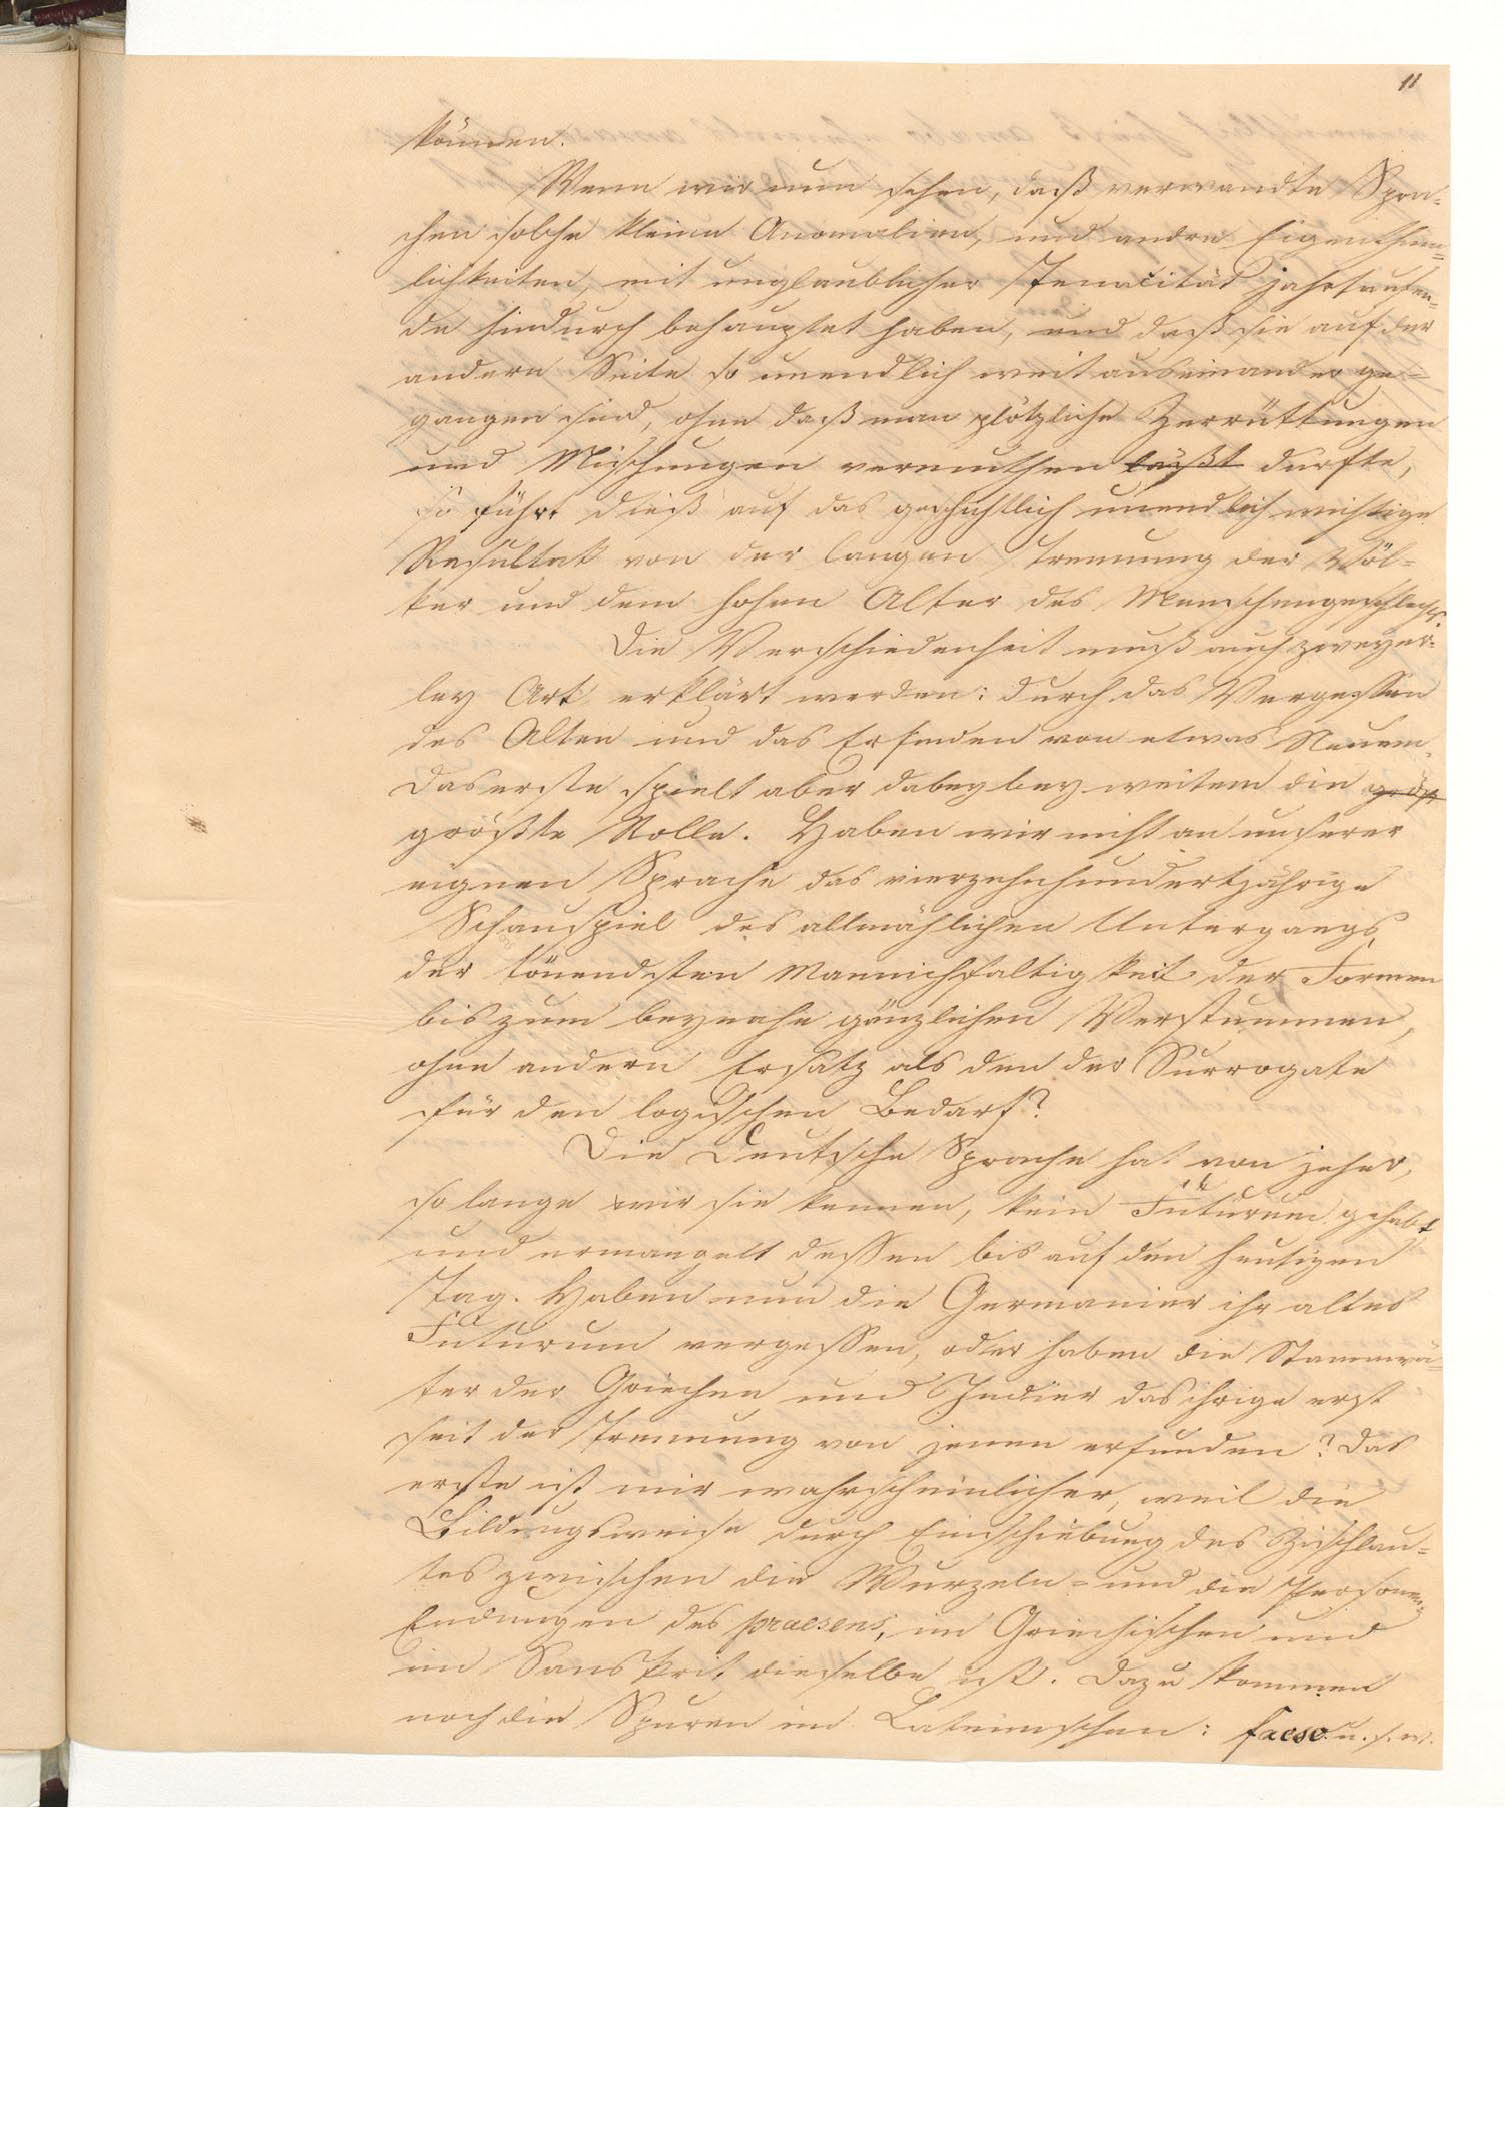 11
können.
Wenn wir nun sehen, daß verwandte Spra-
chen solche kleine Anomalien, und andre Eigenthüm-
lichkeiten, mit unglaublicher Tenacität jahrtausen-
de hindurch behauptet haben, und daß sie auf der
andern Seite so unendlich weit auseinander ge-
gangen sind, ohne daß man plötzliche Zerrüttungen
und Mischungen vermuthen läßt dürfte,
so führt dieß auf das geschichtlich unendlich wichtige
Resultat von der langen Trennung der Völ-
ker und dem hohen Alter des Menschengeschlechts.
Die Verschiedenheit muß auf zweyer-
ley Art erklärt werden: durch das Vergessen
des Alten und das Erfinden von etwas Neuem.
Das erste spielt aber dabey bey weitem die größ
größte Rolle. Haben wir nicht an unserer
eignen Sprache das vierzehnhundertjährige
Schauspiel des allmählichen Untergangs
der tönendsten Mannichfaltigkeit der Formen
bis zum beynahe gänzlichen Verstummen,
ohne andern Ersatz als den der Surrogate
für den logischen Bedarf?
Die Deutsche Sprache hat von jeher,
so lange wir sie kennen, kein Futurum gehabt
und ermangelt dessen bis auf den heutigen
Tag. Haben nun die Germanier ihr altes
Futurum vergessen, oder haben die Stammvä-
ter der Griechen und Indier das ihrige erst
seit der Trennung von jenen erfunden? Das
erste ist mir wahrscheinlicher, weil die
Bildungsweise durch Einschiebung des Zischlau-
tes zwischen die Wurzeln- und die Personen-
Endungen des praesens, im Griechischen und
im Sanskrit dieselbe ist. Dazu kommen
noch die Spuren im Lateinischen: faxo u. s. w.